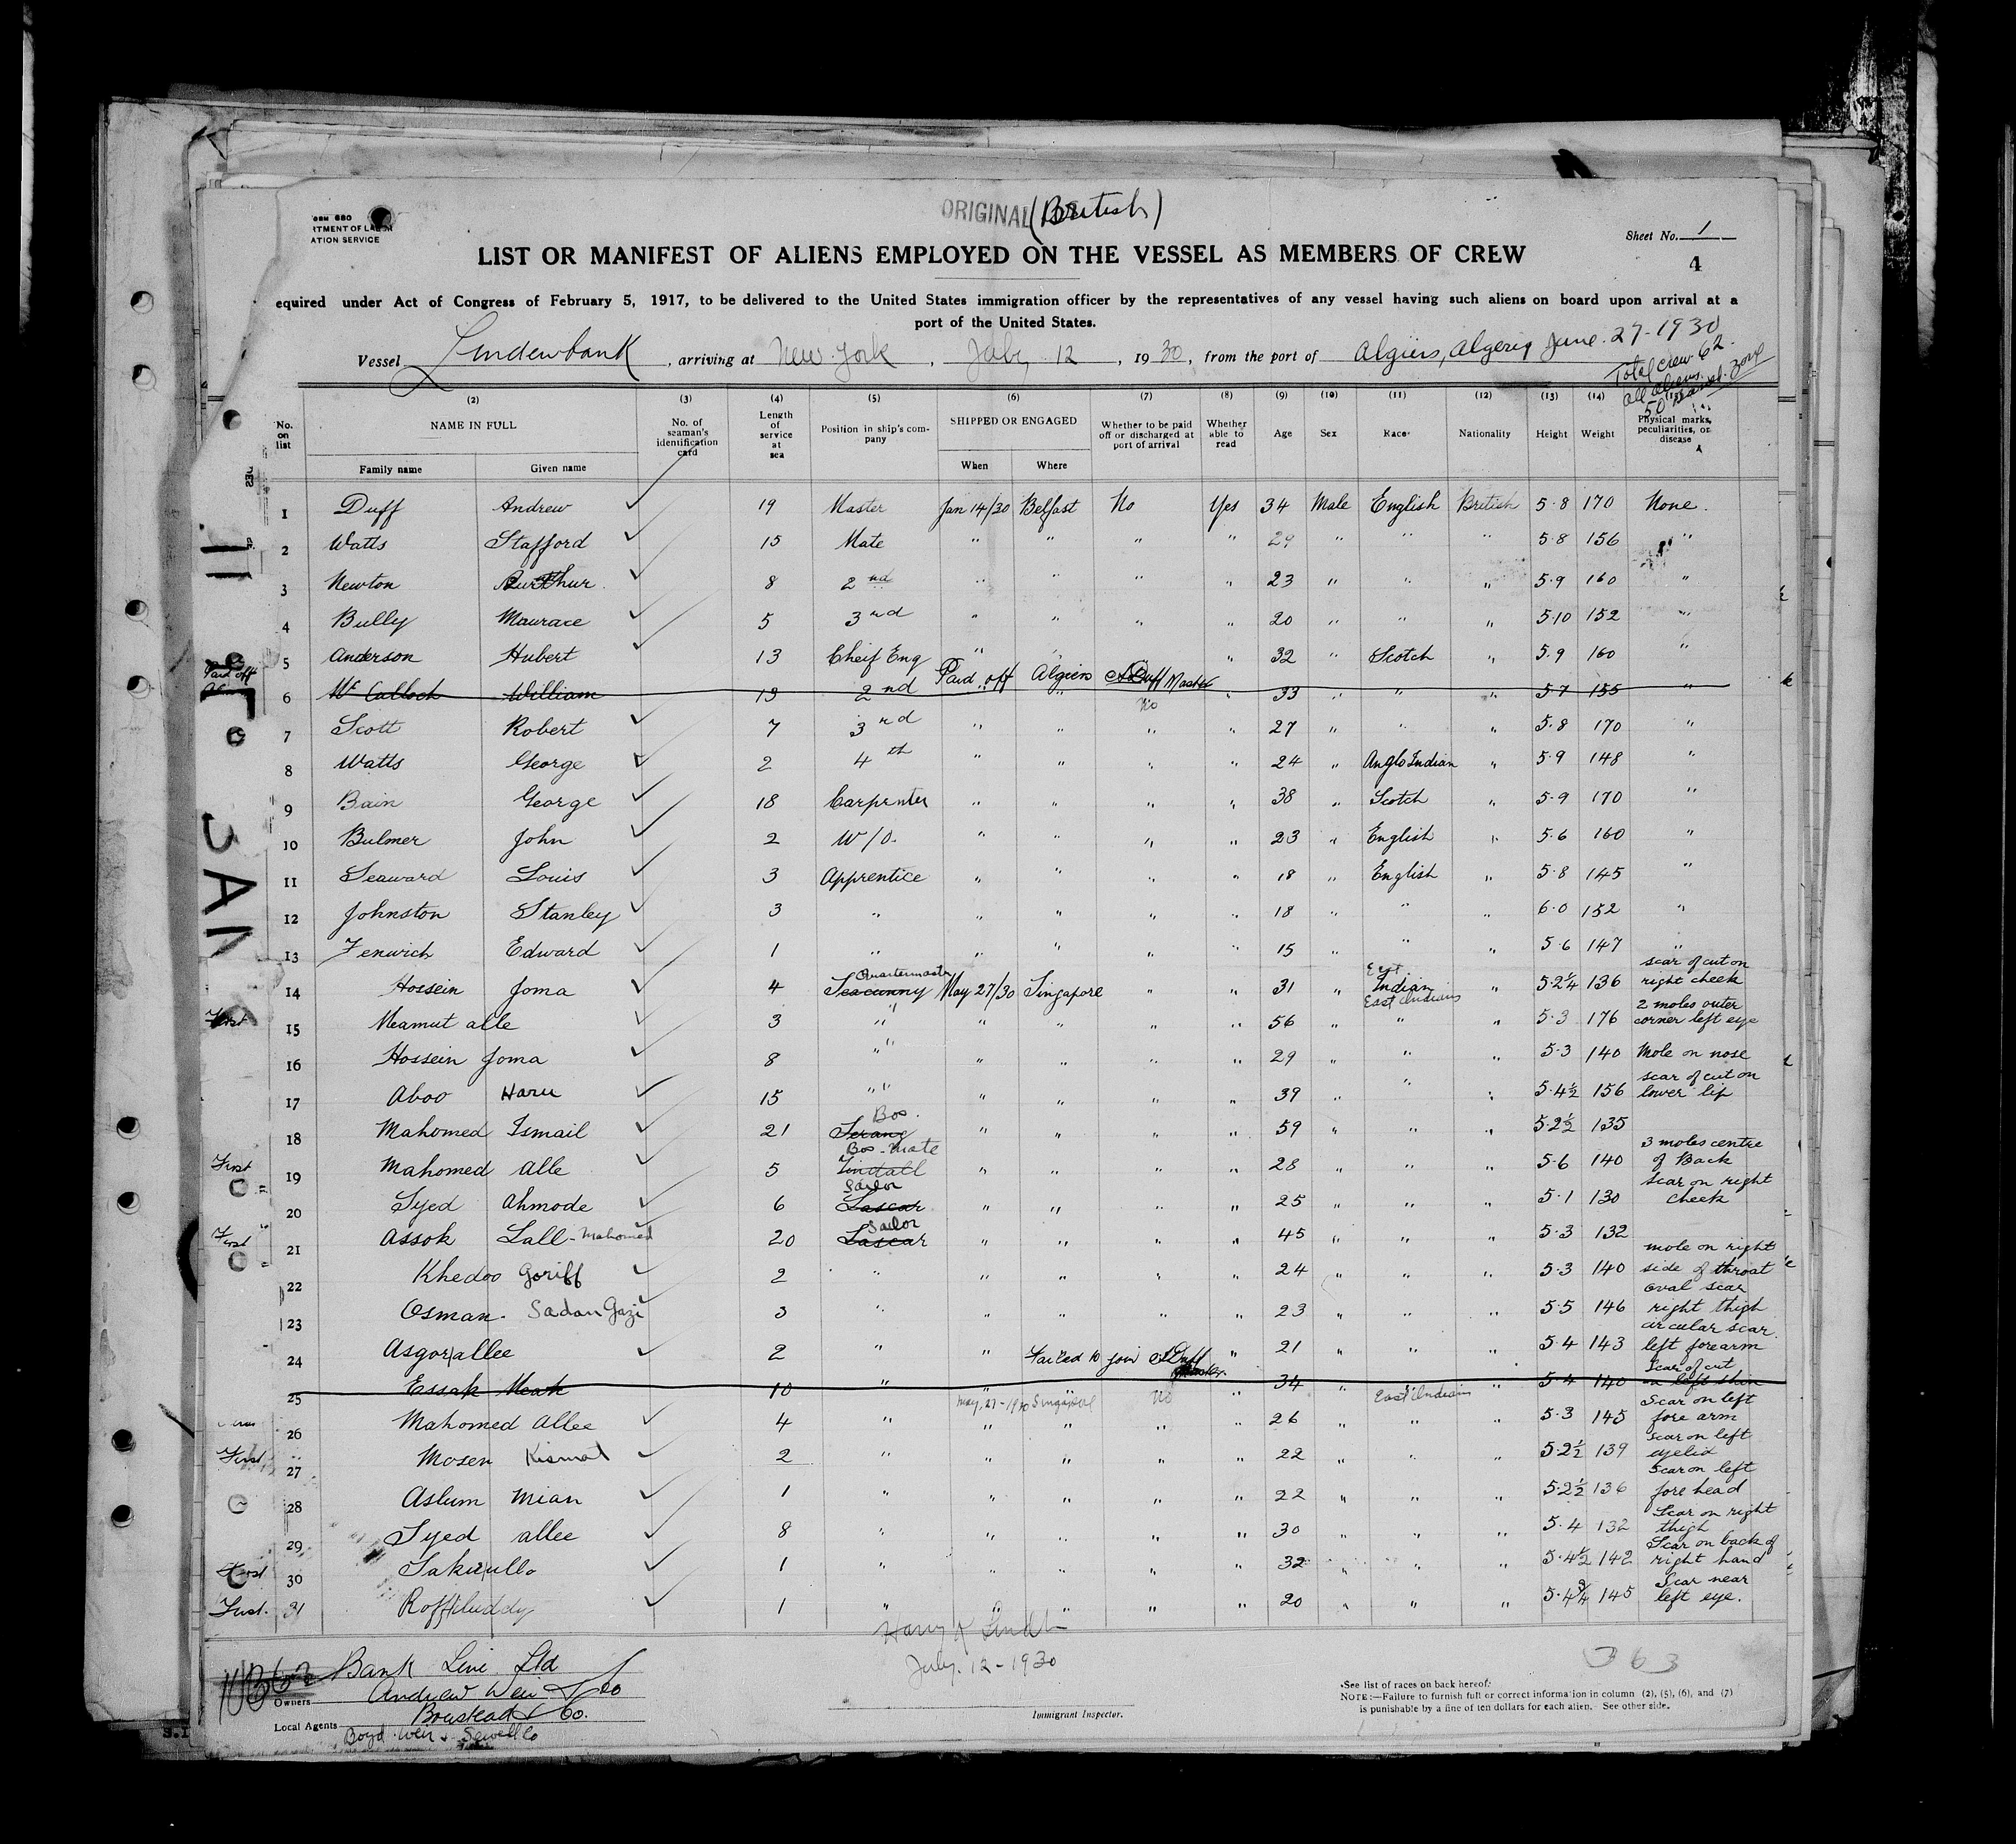 ORIGINAL (British)
RTMENT OF LABOR
ATION SERVICE
Sheet No. 1
4
LIST OR MANIFEST OF ALIENS EMPLOYED ON THE VESSEL AS MEMBERS OF CREW
equired under Act of Congress of February 5, 1917, to be delivered to the United States immigration officer by the representatives of any vessel having such aliens on board upon arrival at a
port of the United States.
Vessel Lindenbank, arriving at New York, July 12, 1930, from the port of Algiers, Algeria June. 27-1930
Total crew 62.
all aliens.
(2) (3) (4) (5) (6) (7) (8) (9) (10) (11) (12) (13) (14)
No. on list NAME IN FULL No. of seaman's identification card Length of service at sea Position in ship's company SHIPPED OR ENGAGED Whether to be paid off or discharged at port of arrival Whether able to read Age Sex Race Nationality Height Weight Physical marks, peculiarities, or disease
Family name Given name When Where
1 Duff Andrew 19 Master Jan 14/30 Belfast No Yes 34 Male English British 5·8 170 None.
2 Watts Stafford 15 Mate " " " " 29 " " " 5·8 156 "
3 Newton 8 2nd " " " " 23 " " " 5·9 160 "
4 Bully Maurace 5 3rd " " " " 20 " " " 5·10 152 "
5 Anderson Hubert 13 Cheif Eng " " " 32 " Scotch " 5·9 160 "
Paid off Algiers ADuff Master
6 McCulloch William 13 2nd " " No " 33 " " 5·7 155 "
7 Scott Robert 7 3rd " " " " 27 " " " 5·8 170 "
8 Watts George 2 4th " " " " 24 " Anglo Indian " 5·9 148 "
9 Bain George 18 Carpenter " " " " 38 " Scotch " 5·9 170 "
10 Bulmer John 2 W/O. " " " " 23 " English " 5·6 160 "
11 Seaward Louis 3 Apprentice " " " " 18 " English " 5·8 145 "
12 Johnston Stanley 3 " " " " " 18 " " " 6·0 152 "
13 Fenwich Edward 1 " " " " " 15 " " " 5·6 147 "
14 Hossein Joma 4 Seacunny Quartermaster May 27/30 Singapore " " 31 " East Indian " 5·2¼ 136 scar of cut on right cheek
First 15 Meamut alle 3 " " " " " 56 " East Indians " " 5·3 176 2 moles outer corner left eye
16 Hossein Joma 8 " " " " " 29 " " 5·3 140 Mole on nose
17 Aboo Haru 15 " " " " " 39 " " " 5·4½ 156 scar of cut on lower lip
18 Mahomed Ismail 21 Serang Bos. " " " " 59 " " " 5·2½ 135
First 19 Mahomed Alle 5 Tindall Bos-Mate " " " " 28 " " " 5·6 140 3 moles centre of Back
20 Syed Ahmode 6 Lascar Sailor " " " " 25 " " " 5·1 130 Scar on right cheek
First 21 Assok Lall-Mahomed 20 Lascar Sailor " " " " 45 " " " 5·3 132
22 Khedoo Goriff 2 " " " " " 24 " " " 5·3 140 mole on right side of throat
23 Osman. Sadan Gazi 3 " " " " " 23 " " " 5·5 146 oval scar right thigh
24 Asgor allee 2 " " " 21 " " " 5·4 143 circular scar left forearm
Failed to join ADuff Master
25 Essak Meah 10 " May, 27-1930 Singapore No " 34 " East Indian " 5·4 140 Scar of cut on left shin
26 Mahomed Allee 4 " " " " " 26 " " " 5·3 145 Scar on left fore arm
First 27 Mosen Kismat 2 " " " " " 22 " " " 5·2½ 139 scar on left eyelid
28 Aslum Mian 1 " " " " " 22 " " " 5·2½ 136 Scar on left fore head
29 Syed allee 8 " " " " " 30 " " " 5·4 132 Scar on right thigh
First 30 1 " " " " " 32 " " " 5·4½ 142 Scar on back of right hand
First. 31 1 " " " " " 20 " " " 5·4¾ 145 Scar near left eye.
July. 12-1930
363
Owners Bank Line Ltd
Andrew Weir & Co
Local Agents Boustead & Co.
Boyd Weir & Sewell Co
Immigrant Inspector.
See list of races on back hereof.
NOTE:—Failure to furnish full or correct information in column (2), (5), (6), and (7)
is punishable by a fine of ten dollars for each alien. See other side.